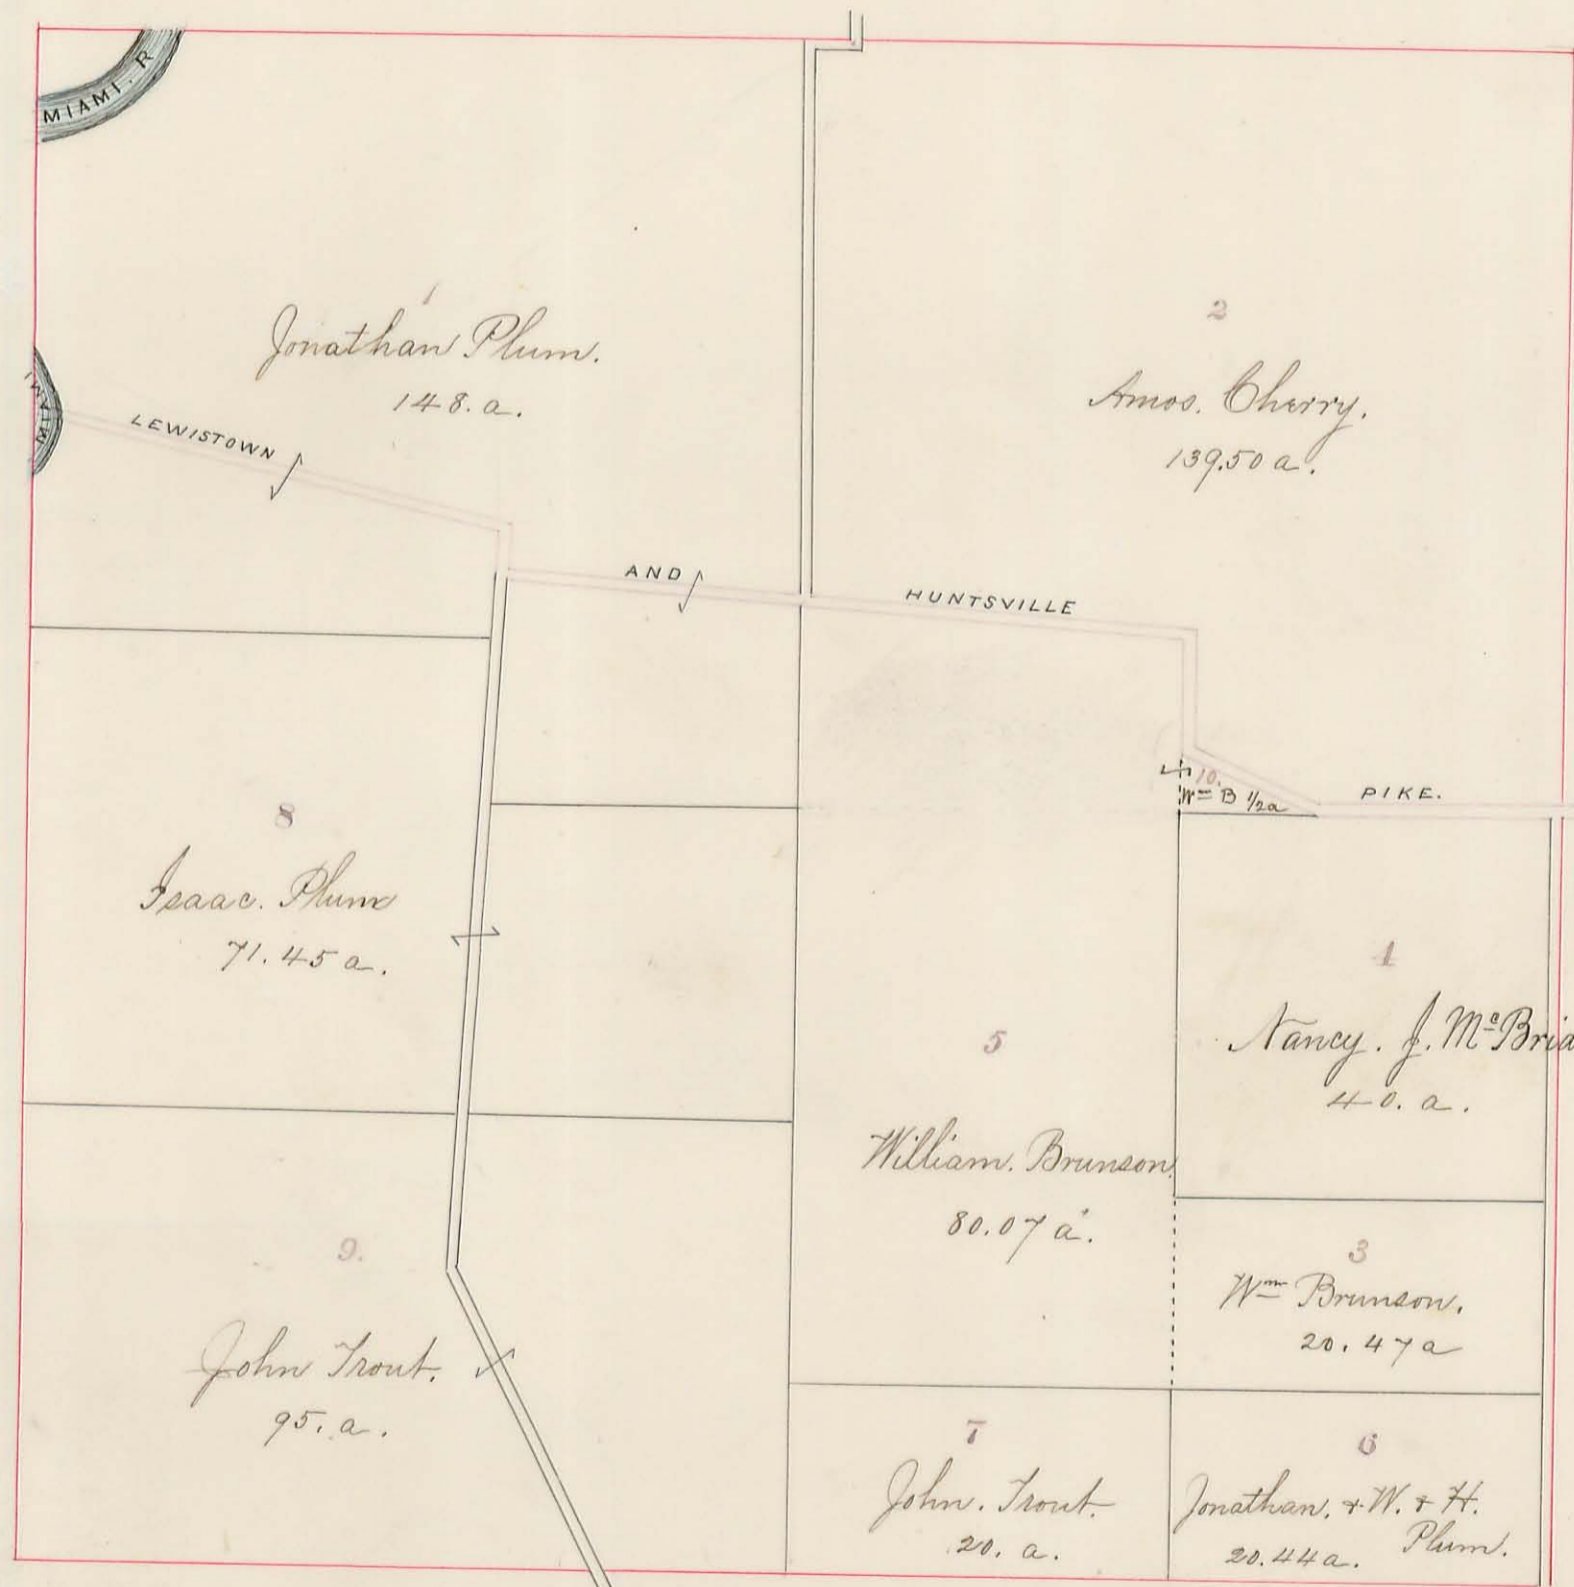 MIAMI. R
1
Jonathan Plum.
148. a.
2
Amos. Cherry.
139.50 a.
MIAMI
LEWISTOWN
AND
HUNTSVILLE
PIKE.
10.
Wm B 1/2a
8
Isaac. Plum
71.45 a.
5
William. Brunson
80.07 a.
Nancy. J. McBrid
40. a.
3
Wm Brunson.
20.47a
9.
John Trout.
95. a.
7
John. Trout.
20. a.
6
Jonathan. & W. & H.
Plum.
20.44a.